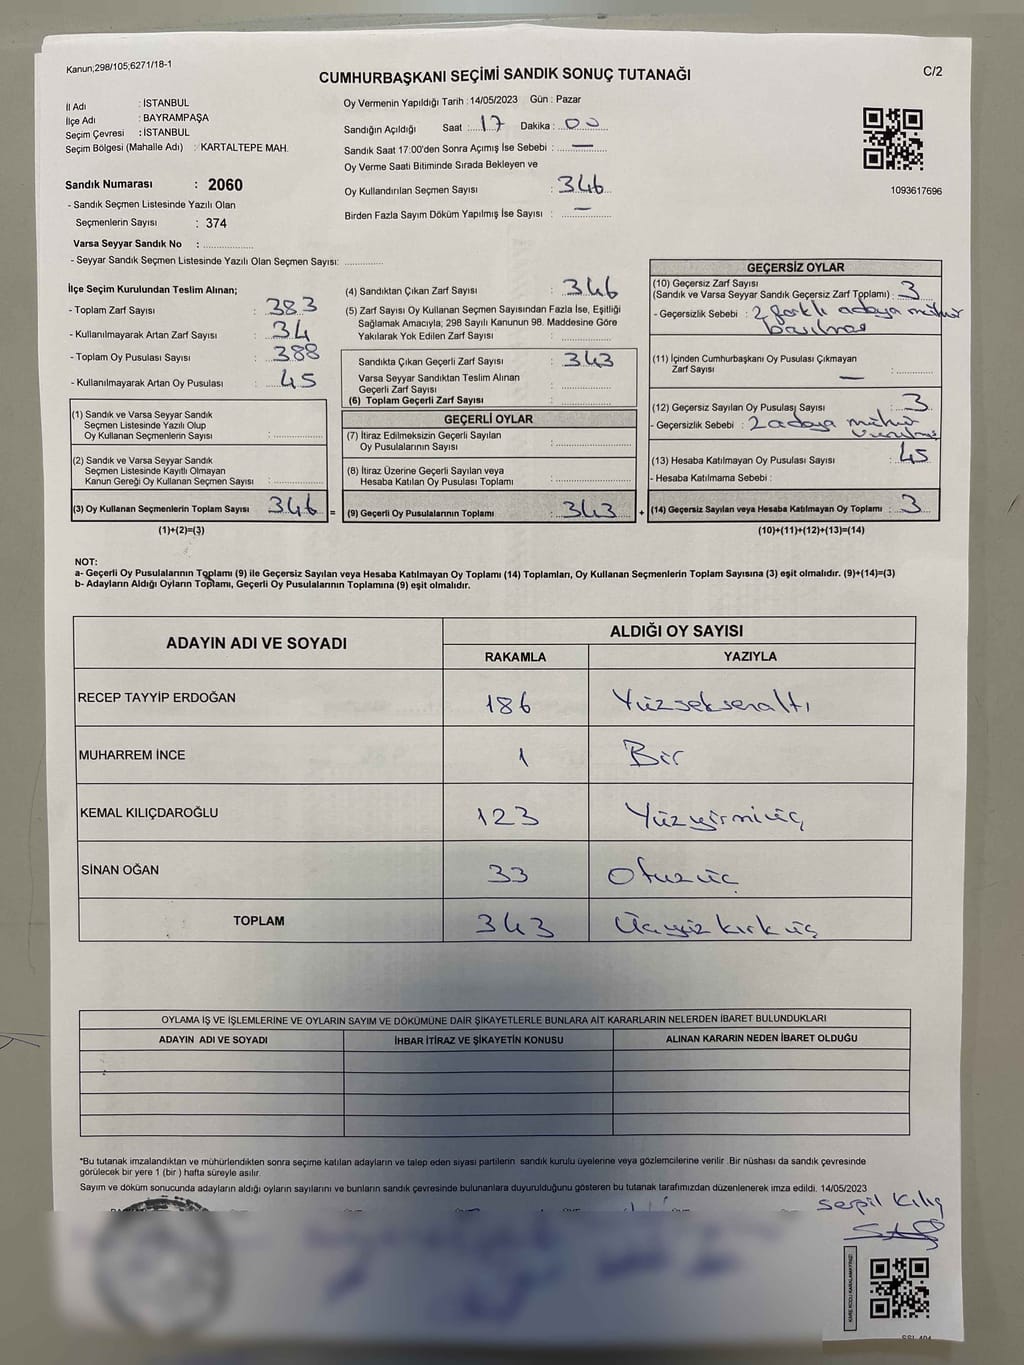 Kanun;298/105;6271/18-1
CUMHURBAŞKANI SEÇİMİ SANDIK SONUÇ TUTANAĞI
C/2
İl Adı : İSTANBUL
İlçe Adı : BAYRAMPAŞA
Seçim Çevresi : İSTANBUL
Seçim Bölgesi (Mahalle Adı) : KARTALTEPE MAH.
Oy Vermenin Yapıldığı Tarih : 14/05/2023 Gün : Pazar
Sandığın Açıldığı Saat : 17 Dakika : 00
Sandık Saat 17:00'den Sonra Açımış İse Sebebi : —
Oy Verme Saati Bitiminde Sırada Bekleyen ve
Oy Kullandırılan Seçmen Sayısı : 346
Birden Fazla Sayım Döküm Yapılmış İse Sayısı : —
1093617696
Sandık Numarası : 2060
- Sandık Seçmen Listesinde Yazılı Olan
Seçmenlerin Sayısı : 374
Varsa Seyyar Sandık No :
- Seyyar Sandık Seçmen Listesinde Yazılı Olan Seçmen Sayısı:
İlçe Seçim Kurulundan Teslim Alınan;
- Toplam Zarf Sayısı : 383
- Kullanılmayarak Artan Zarf Sayısı : 34
- Toplam Oy Pusulası Sayısı : 388
- Kullanılmayarak Artan Oy Pusulası : 45
(1) Sandık ve Varsa Seyyar Sandık
Seçmen Listesinde Yazılı Olup
Oy Kullanan Seçmenlerin Sayısı :
(2) Sandık ve Varsa Seyyar Sandık
Seçmen Listesinde Kayıtlı Olmayan
Kanun Gereği Oy Kullanan Seçmen Sayısı :
(3) Oy Kullanan Seçmenlerin Toplam Sayısı : 346 =
(1)+(2)=(3)
(4) Sandıktan Çıkan Zarf Sayısı : 346
(5) Zarf Sayısı Oy Kullanan Seçmen Sayısından Fazla İse, Eşitliği
Sağlamak Amacıyla; 298 Sayılı Kanunun 98. Maddesine Göre
Yakılarak Yok Edilen Zarf Sayısı :
Sandıkta Çıkan Geçerli Zarf Sayısı : 343
Varsa Seyyar Sandıktan Teslim Alınan
Geçerli Zarf Sayısı :
(6) Toplam Geçerli Zarf Sayısı :
GEÇERLİ OYLAR
(7) İtiraz Edilmeksizin Geçerli Sayılan
Oy Pusulalarının Sayısı :
(8) İtiraz Üzerine Geçerli Sayılan veya
Hesaba Katılan Oy Pusulası Toplamı :
(9) Geçerli Oy Pusulalarının Toplamı : 343 +
GEÇERSİZ OYLAR
(10) Geçersiz Zarf Sayısı
(Sandık ve Varsa Seyyar Sandık Geçersiz Zarf Toplamı) : 3
- Geçersizlik Sebebi : 2 farklı adaya mühür
basılması
(11) İçinden Cumhurbaşkanı Oy Pusulası Çıkmayan
Zarf Sayısı — :
(12) Geçersiz Sayılan Oy Pusulası Sayısı : 3
- Geçersizlik Sebebi : 2 adaya mühür
(13) Hesaba Katılmayan Oy Pusulası Sayısı : 45
- Hesaba Katılmama Sebebi :
(14) Geçersiz Sayılan veya Hesaba Katılmayan Oy Toplamı : 3
(10)+(11)+(12)+(13)=(14)
NOT:
a- Geçerli Oy Pusulalarının Toplamı (9) ile Geçersiz Sayılan veya Hesaba Katılmayan Oy Toplamı (14) Toplamları, Oy Kullanan Seçmenlerin Toplam Sayısına (3) eşit olmalıdır. (9)+(14)=(3)
b- Adayların Aldığı Oyların Toplamı, Geçerli Oy Pusulalarının Toplamına (9) eşit olmalıdır.
ADAYIN ADI VE SOYADI
ALDIĞI OY SAYISI
RAKAMLA YAZIYLA
RECEP TAYYİP ERDOĞAN 186 Yüzseksenaltı
MUHARREM İNCE 1 Bir
KEMAL KILIÇDAROĞLU 123 Yüzyirmiüç
SİNAN OĞAN 33 Otuzüç
TOPLAM 343 Üçyüzkırküç
OYLAMA İŞ VE İŞLEMLERİNE VE OYLARIN SAYIM VE DÖKÜMÜNE DAİR ŞİKAYETLERLE BUNLARA AİT KARARLARIN NELERDEN İBARET BULUNDUKLARI
ADAYIN ADI VE SOYADI İHBAR İTİRAZ VE ŞİKAYETİN KONUSU ALINAN KARARIN NEDEN İBARET OLDUĞU
*Bu tutanak imzalandıktan ve mühürlendikten sonra seçime katılan adayların ve talep eden siyasi partilerin sandık kurulu üyelerine veya gözlemcilerine verilir .Bir nüshası da sandık çevresinde
görülecek bir yere 1 (bir ) hafta süreyle asılır.
Sayım ve döküm sonucunda adayların aldığı oyların sayılarını ve bunların sandık çevresinde bulunanlara duyurulduğunu gösteren bu tutanak tarafımızdan düzenlenerek imza edildi. 14/05/2023
Serpil Kılıç